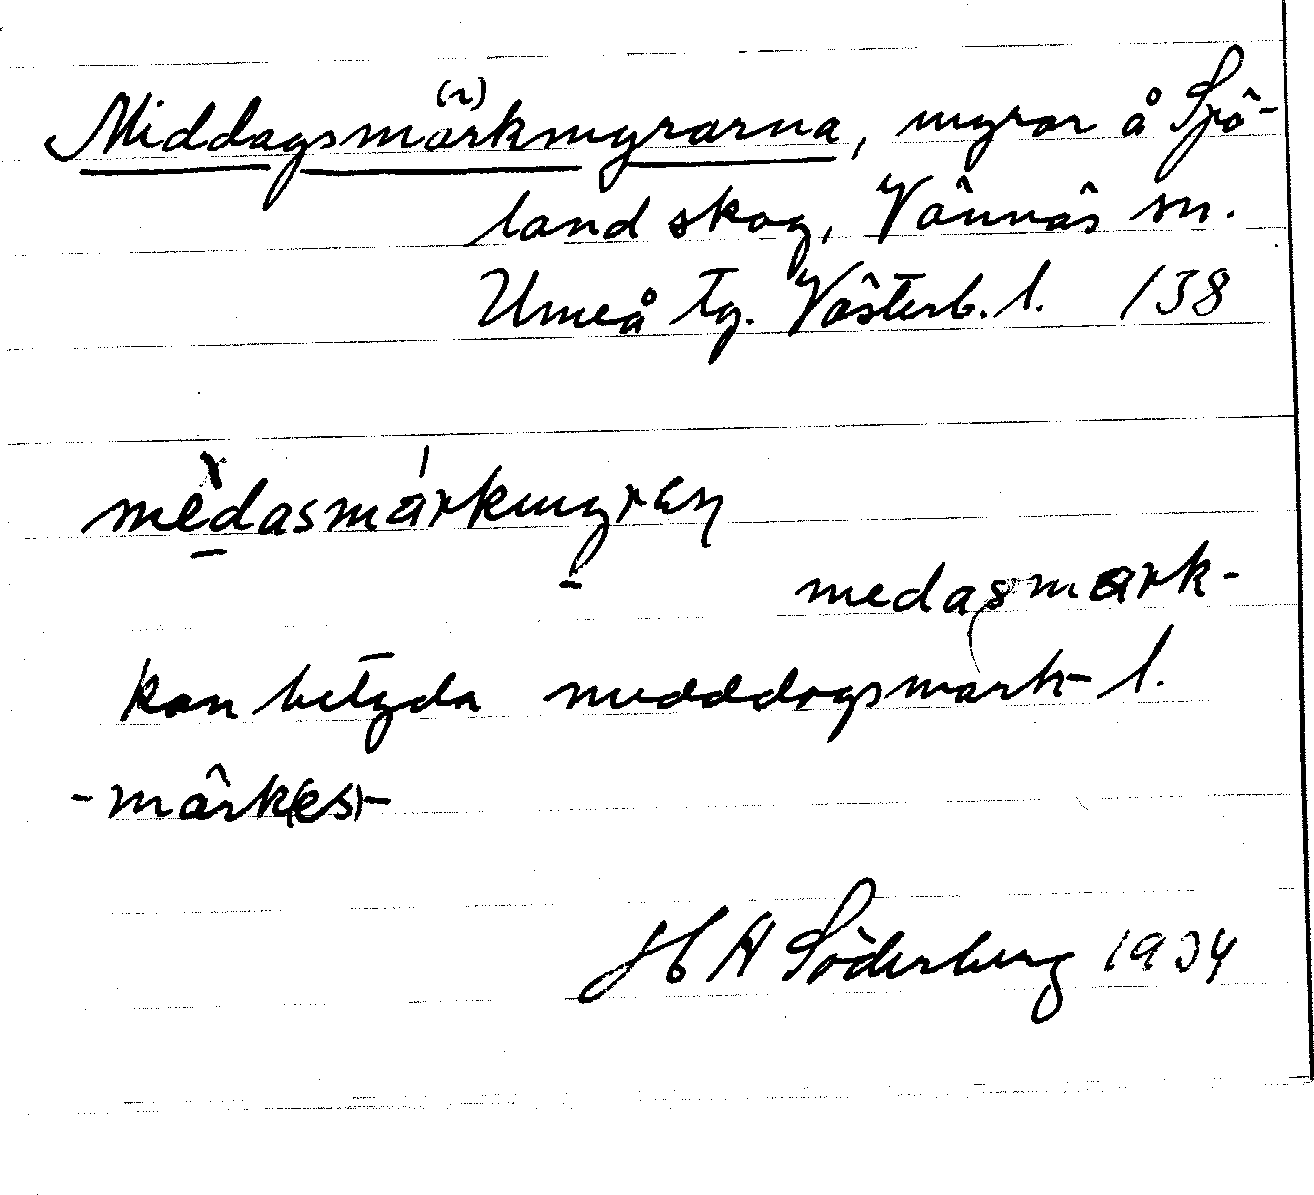 Middagsmarkmyrarna, myrar å Sjö-
(¨)
land skog, Vännäs sn.
Umeå tg. Västerb. l. 138
medasmarkmyren
medasmark-
kan betyda middagsmark- l.
-märk(es)-
H A Söderberg 1934